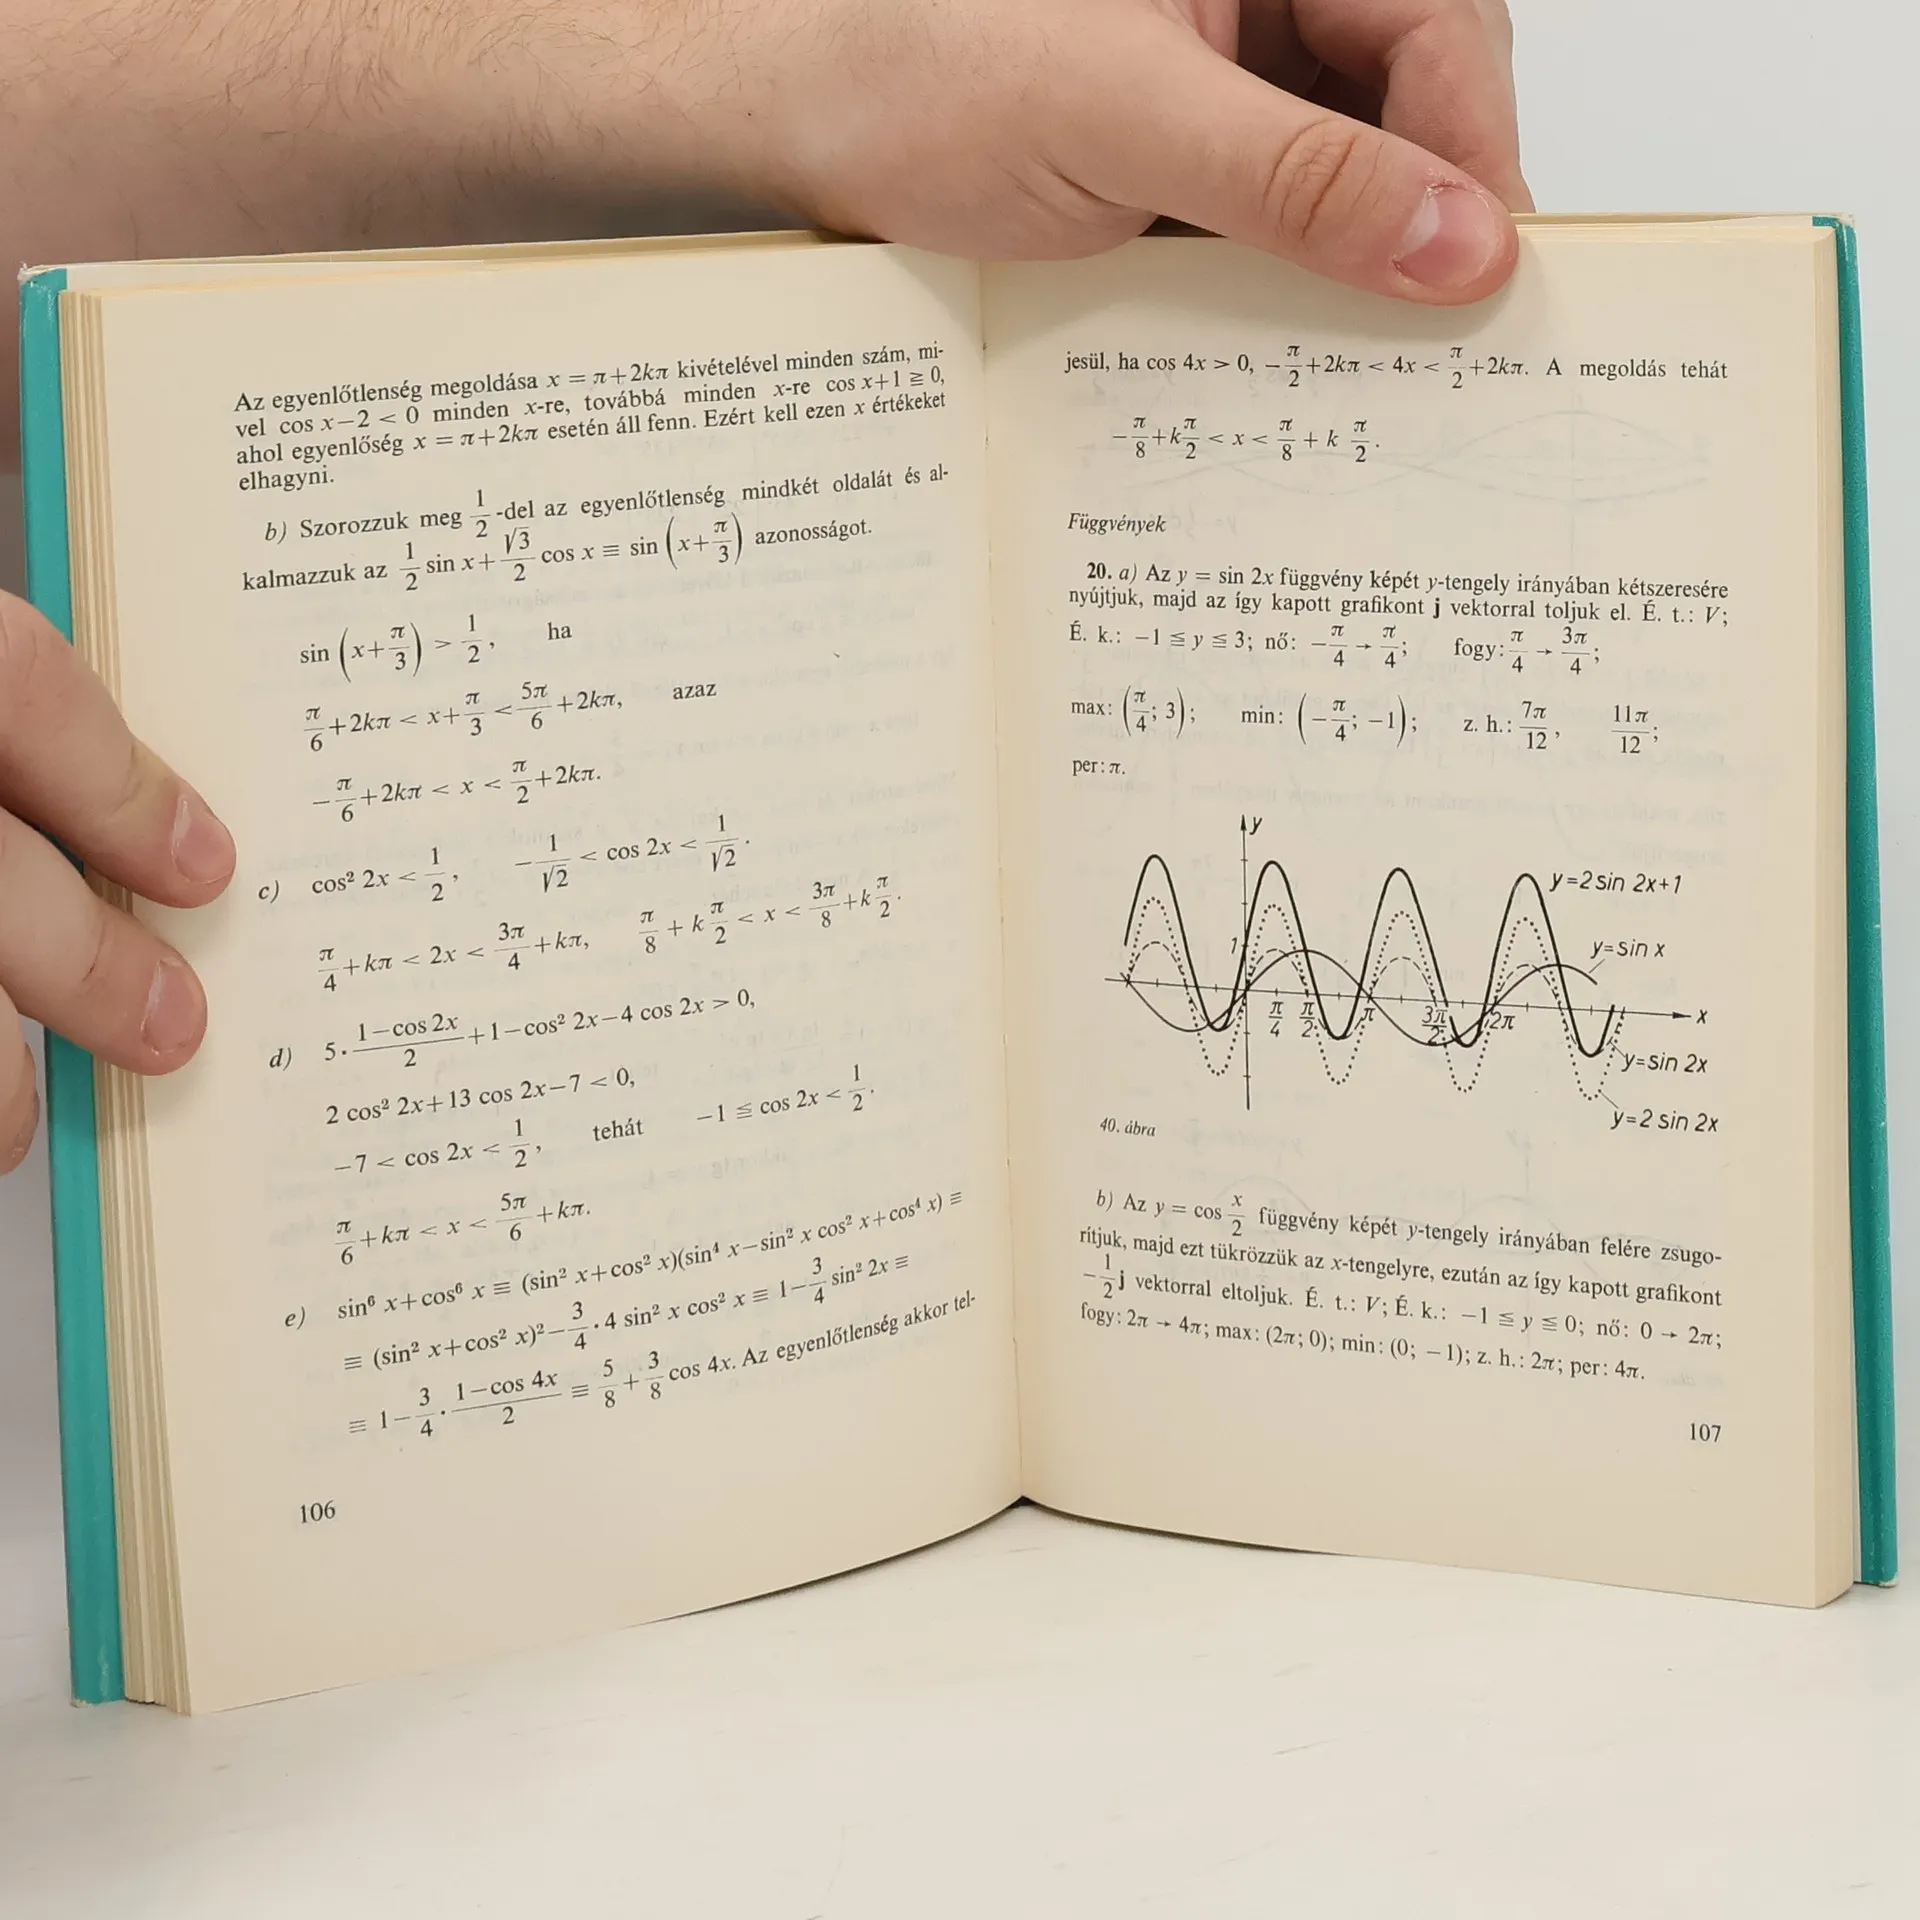 Az egyenlőtlenség megoldása x = π+2kπ kivételével minden szám, mi-
vel cos x−2 < 0 minden x-re, továbbá minden x-re cos x+1 ≧ 0,
ahol egyenlőség x = π+2kπ esetén áll fenn. Ezért kell ezen x értékeket
elhagyni.
b) Szorozzuk meg 1/2-del az egyenlőtlenség mindkét oldalát és al-
kalmazzuk az 1/2 sin x+ √3/2 cos x ≡ sin (x+ π/3) azonosságot.
sin (x+ π/3) > 1/2, ha
π/6 +2kπ < x+ π/3 < 5π/6 +2kπ, azaz
− π/6 +2kπ < x < π/2 +2kπ.
c) cos² 2x < 1/2, − 1/√2 < cos 2x < 1/√2.
π/4 +kπ < 2x < 3π/4 +kπ, π/8 + k π/2 < x < 3π/8 +k π/2.
d) 5· (1−cos 2x)/2 +1−cos² 2x−4 cos 2x > 0,
2 cos² 2x+13 cos 2x−7 < 0,
−7 < cos 2x < 1/2, tehát −1 ≦ cos 2x < 1/2.
π/6 +kπ < x < 5π/6 +kπ.
e) sin⁶ x+cos⁶ x ≡ (sin² x+cos² x)(sin⁴ x−sin² x cos² x+cos⁴ x) ≡
≡ (sin² x+cos² x)²− 3/4 ·4 sin² x cos² x ≡ 1− 3/4 sin² 2x ≡
≡ 1− 3/4 · (1−cos 4x)/2 ≡ 5/8 + 3/8 cos 4x. Az egyenlőtlenség akkor tel-
106
jesül, ha cos 4x > 0, − π/2 +2kπ < 4x < π/2 +2kπ. A megoldás tehát
− π/8 +k π/2 < x < π/8 + k π/2.
Függvények
20. a) Az y = sin 2x függvény képét y-tengely irányában kétszeresére
nyújtjuk, majd az így kapott grafikont j vektorral toljuk el. É. t.: V;
É. k.: −1 ≦ y ≦ 3; nő: − π/4 → π/4; fogy: π/4 → 3π/4;
max: (π/4; 3); min: (− π/4; −1); z. h.: 7π/12, 11π/12;
per: π.
y
y=2 sin 2x+1
y=sin x
1
π/4 π/2 π 3π/2 2π x
y=sin 2x
y=2 sin 2x
40. ábra
b) Az y = cos x/2 függvény képét y-tengely irányában felére zsugo-
rítjuk, majd ezt tükrözzük az x-tengelyre, ezután az így kapott grafikont
− 1/2 j vektorral eltoljuk. É. t.: V; É. k.: −1 ≦ y ≦ 0; nő: 0 → 2π;
fogy: 2π → 4π; max: (2π; 0); min: (0; −1); z. h.: 2π; per: 4π.
107